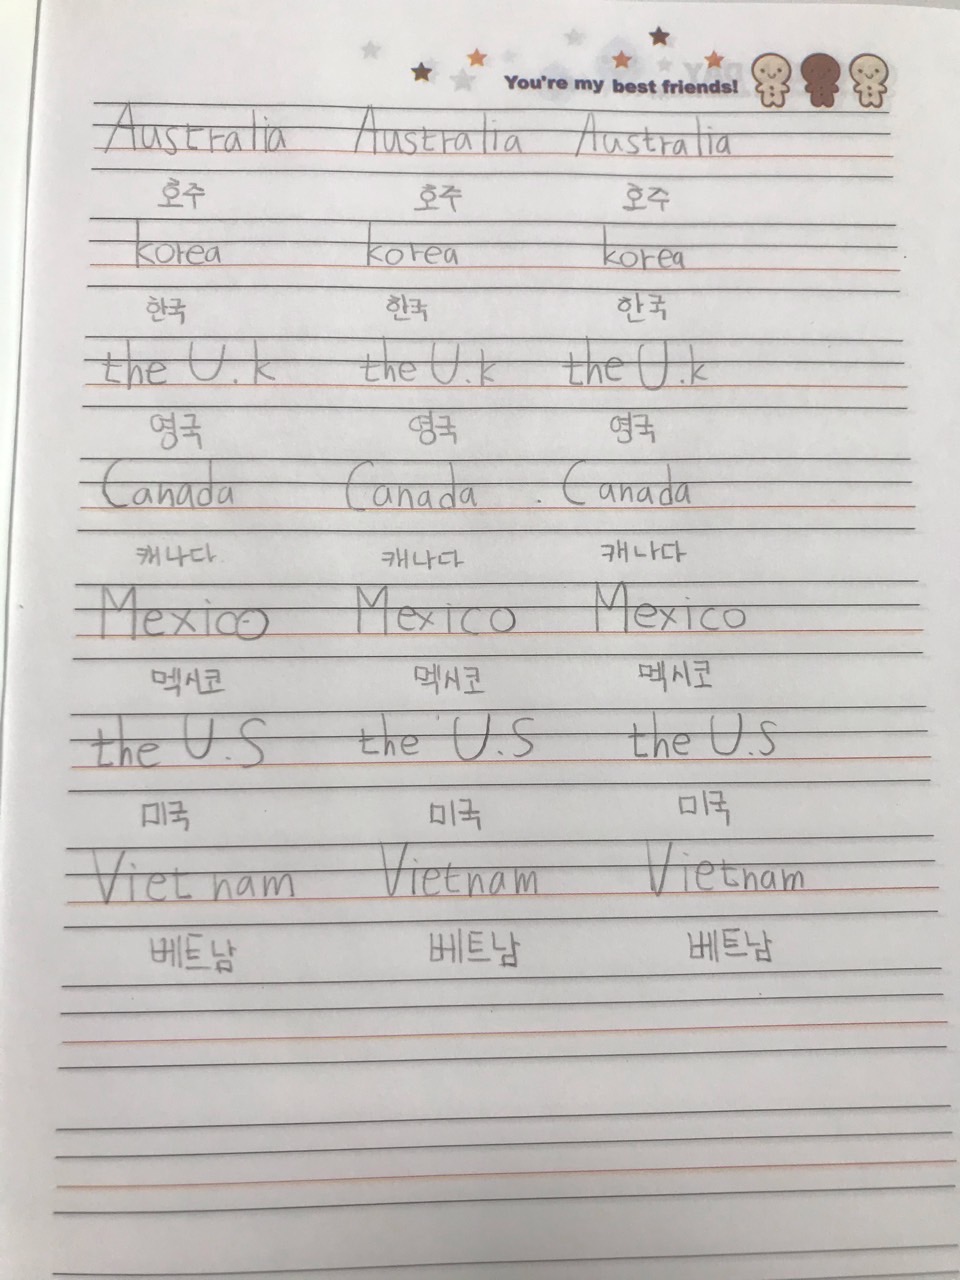 You're my best friends!
Australia Australia Australia
호주 호주 호주
korea korea korea
한국 한국 한국
the U.k the U.k the U.k
영국 영국 영국
Canada Canada Canada
캐나다 캐나다 캐나다
Mexico Mexico Mexico
멕시코 멕시코 멕시코
the U.S the U.S the U.S
미국 미국 미국
Vietnam Vietnam Vietnam
베트남 베트남 베트남